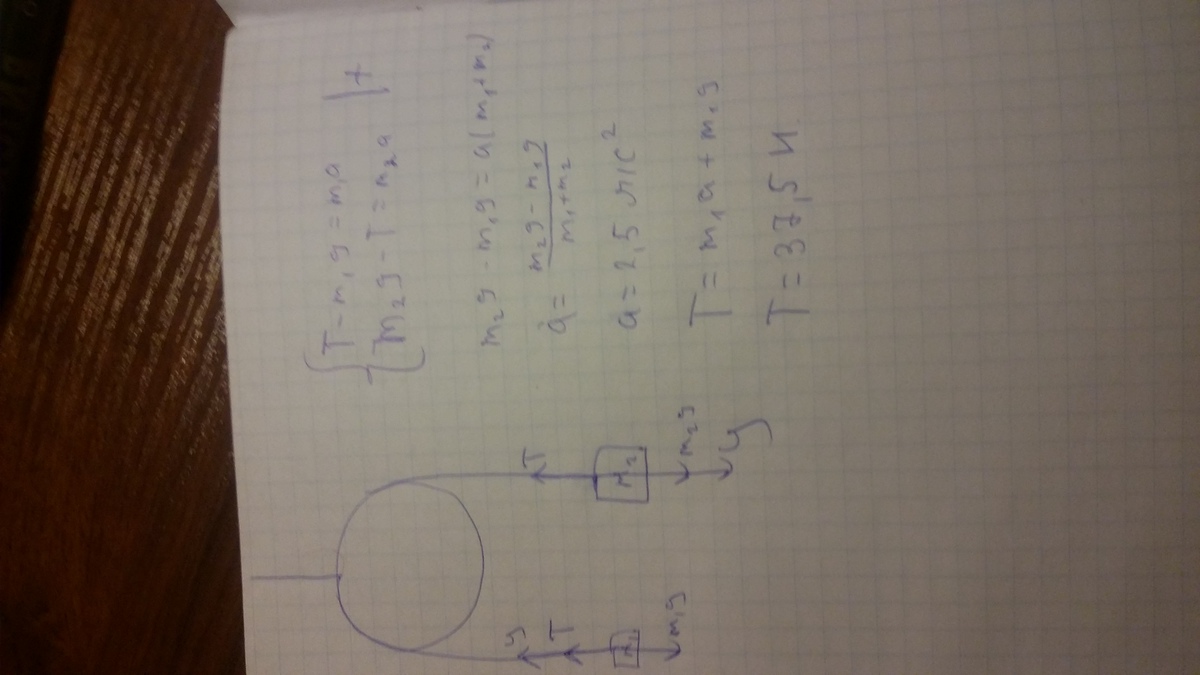 T - m₁g = m₁a | +
m₂g - T = m₂a
m₂g - m₁g = a(m₁+m₂)
a = (m₂g - m₁g) / (m₁+m₂)
a = 2,5 м/с²
T = m₁a + m₁g
T = 37,5 Н
y
T
m₁
m₁g
T
m₂
m₂g
y